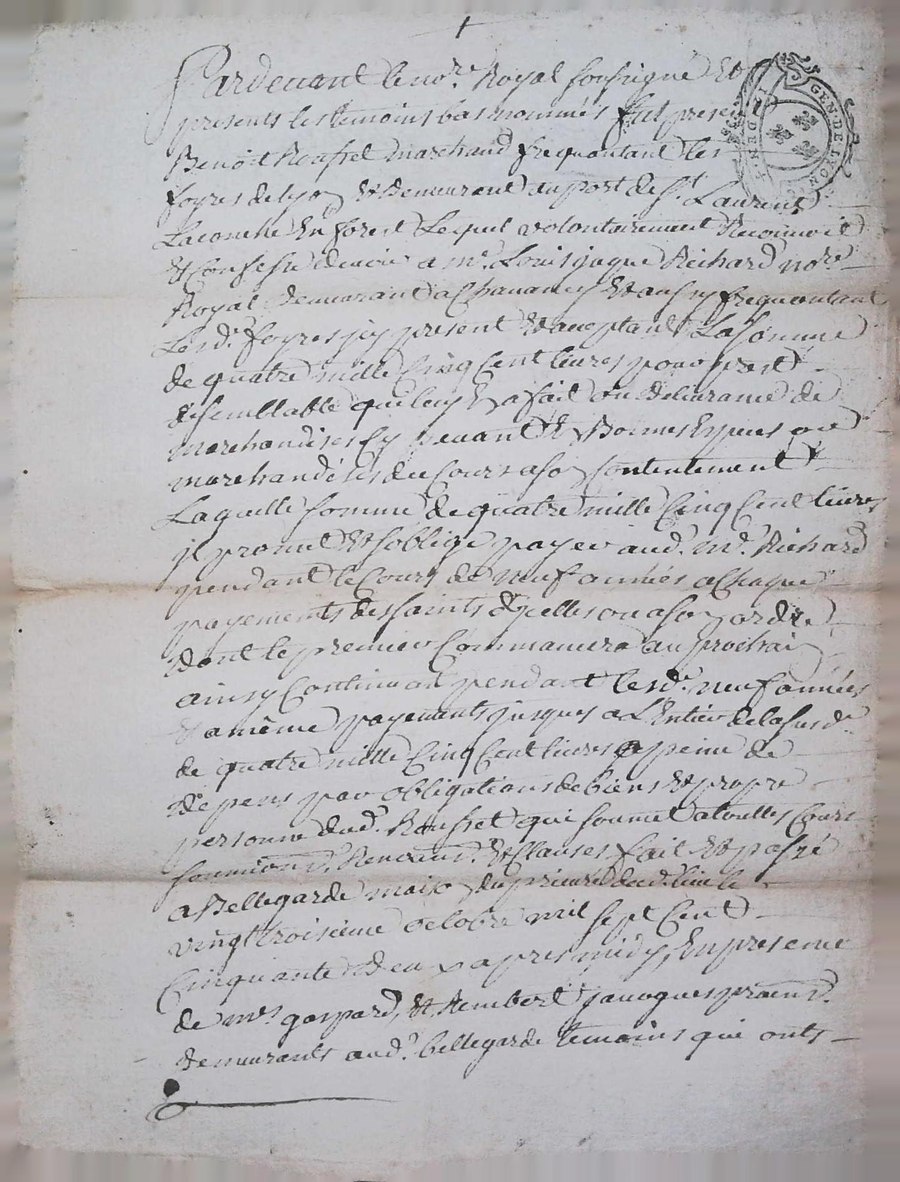 Pardevant le no.re Royal sousigné Et
presents les temoins bas nommés fut present
Benoit Roussel marchand frequantant les
foyres de lyon Et demeurant au port de St. Laurent
Lacouche En forest Lequel volontairement Reconnoit
Et Confesse devoir a Me. Louis jaque Richard no.re
Royal demeurant a Chavanay Et aussy frequantant
Lesd. foyres jcy present Et acceptant La somme
de quatre mille Cinq Cent livres pour prest
de semblable que luy a fait ou delivrance de
marchandises Cy devant En Bonnes Especes ou
marchandises du Cours a son Contentement
Laquelle somme de quatre mille Cinq Cent livres
jl promet Et s'oblige payer aud. Me. Richard
pendant le Cours de neuf années a Chaque
payements des saints d'jcelles ou a son ordre
dont le premier Commancera au prochain
ainsy Continuant pendant lesd. neuf années
Et a même payements jusques a L'Entier de la susd.
de quatre mille Cinq Cent livres a peine de
depens par obligations de biens Et propre
personne dud. Roussel qui soumet a touttes Cours
soumions. Renonons. Et Clauses fait Et passé
a Bellegarde maison du prieuré dud. lieu le
vingt troisieme octobre mil sept Cent
Cinquante deux apres midy, En presence
de Mrs gaspard, Et Rembert javogues
demeurants aud. bellegarde temoins qui onts
GEN. DE LYON